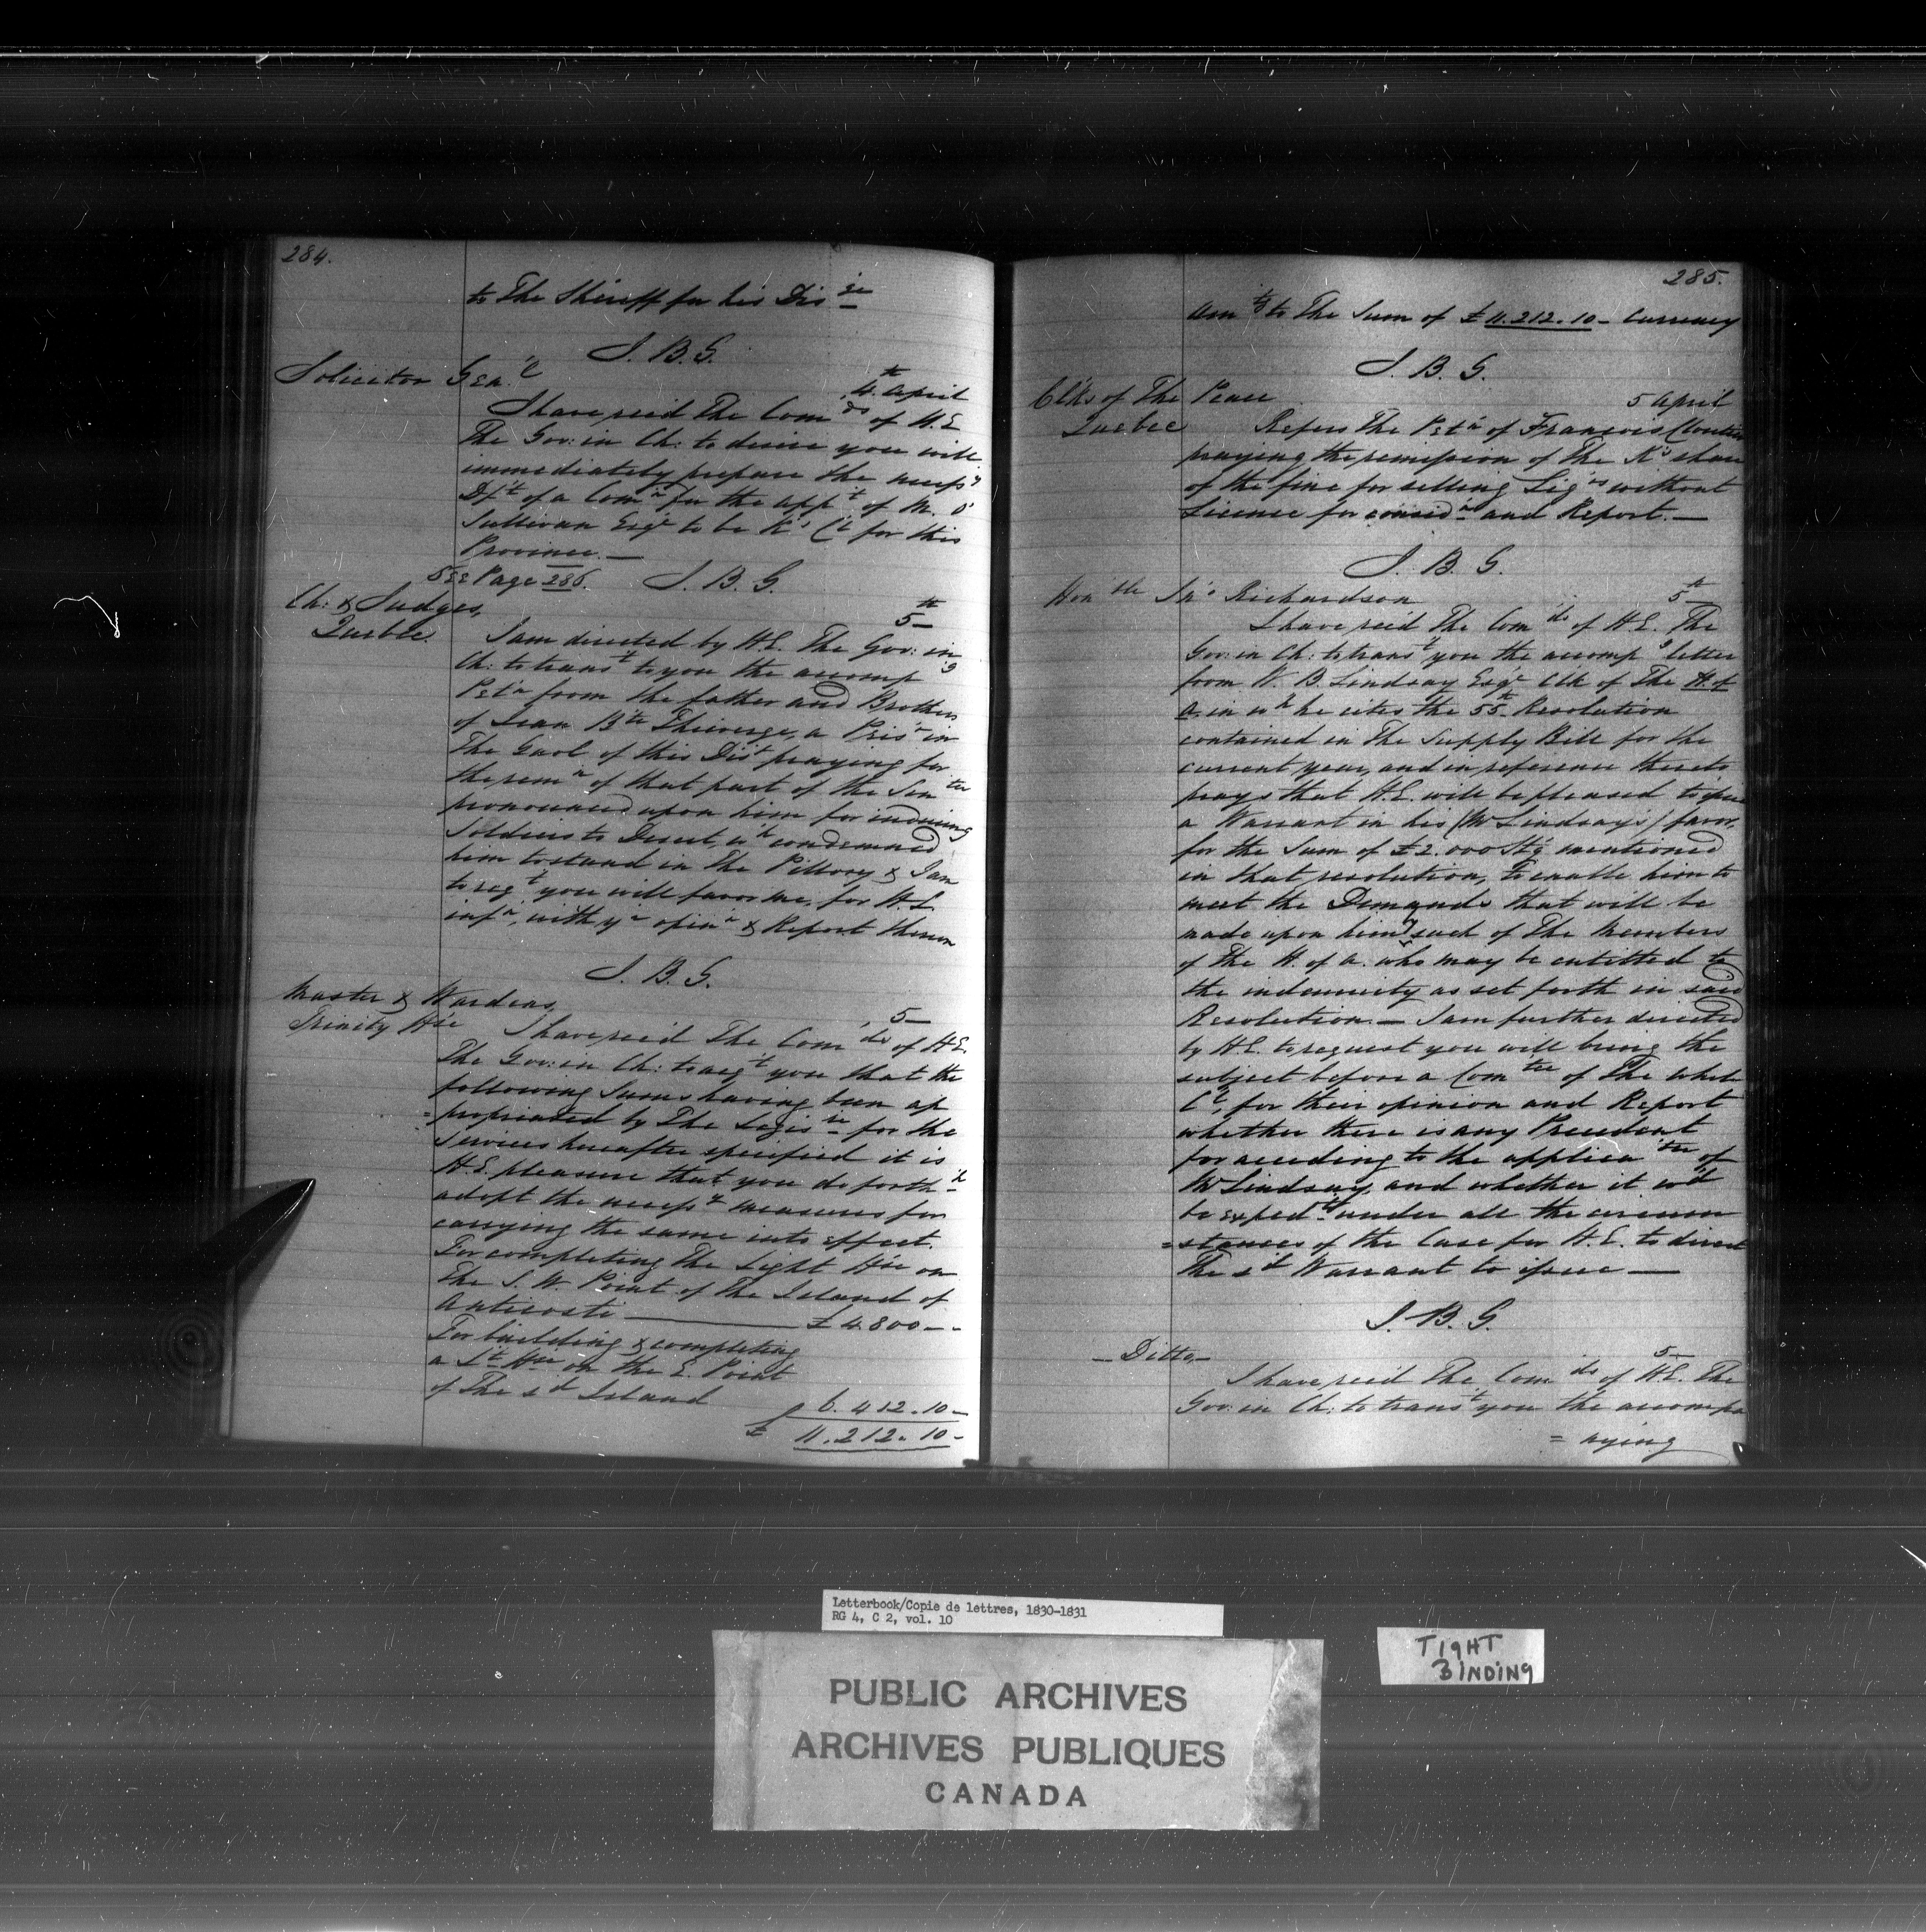 284.
to The Sheriff for his Dis ge
J. B. G.
Solicitor Gen.l
4th April
I have recd The Com ds of H.E
The Gov: in Ch: to desire you will
immediately prepare the necessy
Dft of a Comn for the appt of M. O'
Sullivan Esqr to be K's Cl for this
Province. —
See Page 286. J. B. G.
Ch: & Judges,
Quebec.
5th
I am directed by H.E. The Gov: in
Ch: to transt to you the accomp g
Petn from the father and Brothers
of Jean Bte Thivierge, a Prisr in
The Gaol of this Dist praying for
the remn of that part of the Sen ce
pronounced upon him for inducing
Soldiers to Desert, wh condemned
him to stand in The Pillory & I am
to reqt you will favor me, for H.E.
infn, with yr opinn & Report thereon
J. B. G.
Master & Wardens,
Trinity Hse
5—
I have recd The Com ds of H.E.
The Gov: in Ch: to acqt you that the
following Sums having been ap
=propriated by The Legis re for the
services hereafter specified it is
H.E. pleasure that you do forth h
adopt the necessy measures for
carrying the same into effect.
For completing The Light Hse on
The S. W. Point of The Island of
Anticosti — £ 4.800 — -
For building & completing
a Lt Hse on the E. Point
of The sd Island
6. 412. 10 —
£ 11. 212. 10 -
285.
Am tg to The Sum of £ 11.212.10 - Currency
J. B. G.
Clks of The Peace
Quebec
5 April
Refers The Petn of Francois Cloutier
praying the remission of The K's share
of the fine for selling Liqrs without
License for considn and Report. —
J. B. G.
Hon ble Jno Richardson
5th
I have recd The Com ds of H.E. The
Gov: in Ch: to transt you the accomp g letter
from W. B. Lindsay Esqr Clk of The H. of
A. in wh he cites the 55th Resolution
contained in The Supply Bill for the
current year, and in reference thereto
prays that H.E. will be pleased to issue
a Warrant in his (Mr Lindsay's) favor,
for the Sum of £2.000 Stg mentioned
in that resolution, to enable him to
meet the Demands that will be
made upon him by such of The Members
of The H. of A. who may be entitled to
the indemnity as set forth in said
Resolution. — I am further directed
by H.E. to request you will bring the
subject before a Com tee of The whole
Cl, for their opinion and Report
whether there is any Precedent
for acceding to the applica ion of
Mr Lindsay, and whether it wd
be exped t under all the circum
=stances of the Case for H.E. to direct
The sd Warrant to issue —
J. B. G.
— Ditto —
5—
I have recd The Com ds of H.E. The
Gov: in Ch: to transt you the accompa
= nying
Letterbook/Copie de lettres, 1830-1831
RG 4, C 2, vol. 10
PUBLIC ARCHIVES
ARCHIVES PUBLIQUES
CANADA
TIGHT
BINDING